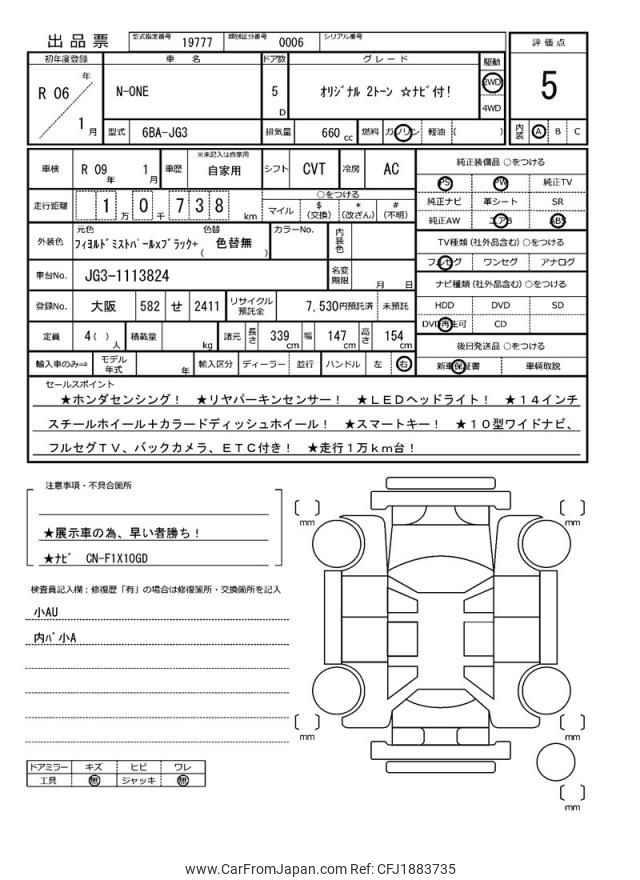 出品票
型式指定番号 19777 類別区分番号 0006 シリアル番号
初年度登録 車名 ドア数 グレード 駆動 評価点
R 06 年 1 月
N-ONE 5 D ｵﾘｼﾞﾅﾙ 2ﾄｰﾝ ☆ﾅﾋﾞ付! 2WD 4WD 5
型式 6BA-JG3 排気量 660 cc 燃料 ガソリン 軽油 ( ) 内装 A B C
車検 R 09 年 1 月 車歴 ※未記入は自家用 自家用 シフト CVT 冷房 AC
純正装備品 ○をつける
PS PW 純正TV
純正ナビ 革シート SR
純正AW エアB ABS
走行距離 1 万 0 千 7 3 8 km
○をつける
マイル $ (交換) * (改ざん) # (不明)
TV種類 (社外品含む) ○をつける
フルセグ ワンセグ アナログ
外装色 元色 色替 ﾌｨﾖﾙﾄﾞﾐｽﾄﾊﾟｰﾙxﾌﾞﾗｯｸ+ ( 色替無 ) カラーNo. 内装色
ナビ種類 (社外品含む) ○をつける
HDD DVD SD
DVD再生可 CD
車台No. JG3-1113824 名変期限 月 日
登録No. 大阪 582 せ 2411 リサイクル預託金 7,530円預託済 未預託
定員 4 ( ) 人 積載量 kg 諸元 長さ 339 cm 幅 147 cm 高さ 154 cm
後日発送品 ○をつける
新車保証書 車輌取説
輸入車のみ⇒ モデル年式 年 輸入区分 ディーラー 並行 ハンドル 左 右
セールスポイント
★ホンダセンシング！ ★リヤパーキンセンサー！ ★ＬＥＤヘッドライト！ ★１４インチ
スチールホイール＋カラードディッシュホイール！ ★スマートキー！ ★１０型ワイドナビ、
フルセグＴＶ、バックカメラ、ＥＴＣ付き！ ★走行１万ｋｍ台！
注意事項・不具合箇所
★展示車の為、早い者勝ち！
★ﾅﾋﾞ CN-F1X10GD
検査員記入欄：修復歴「有」の場合は修復箇所・交換箇所を記入
小AU
内ﾊﾟ小A
mm
mm
mm
mm
mm
ドアミラー キズ ヒビ ワレ
工具 無 ジャッキ 無
www.CarFromJapan.com Ref: CFJ1883735